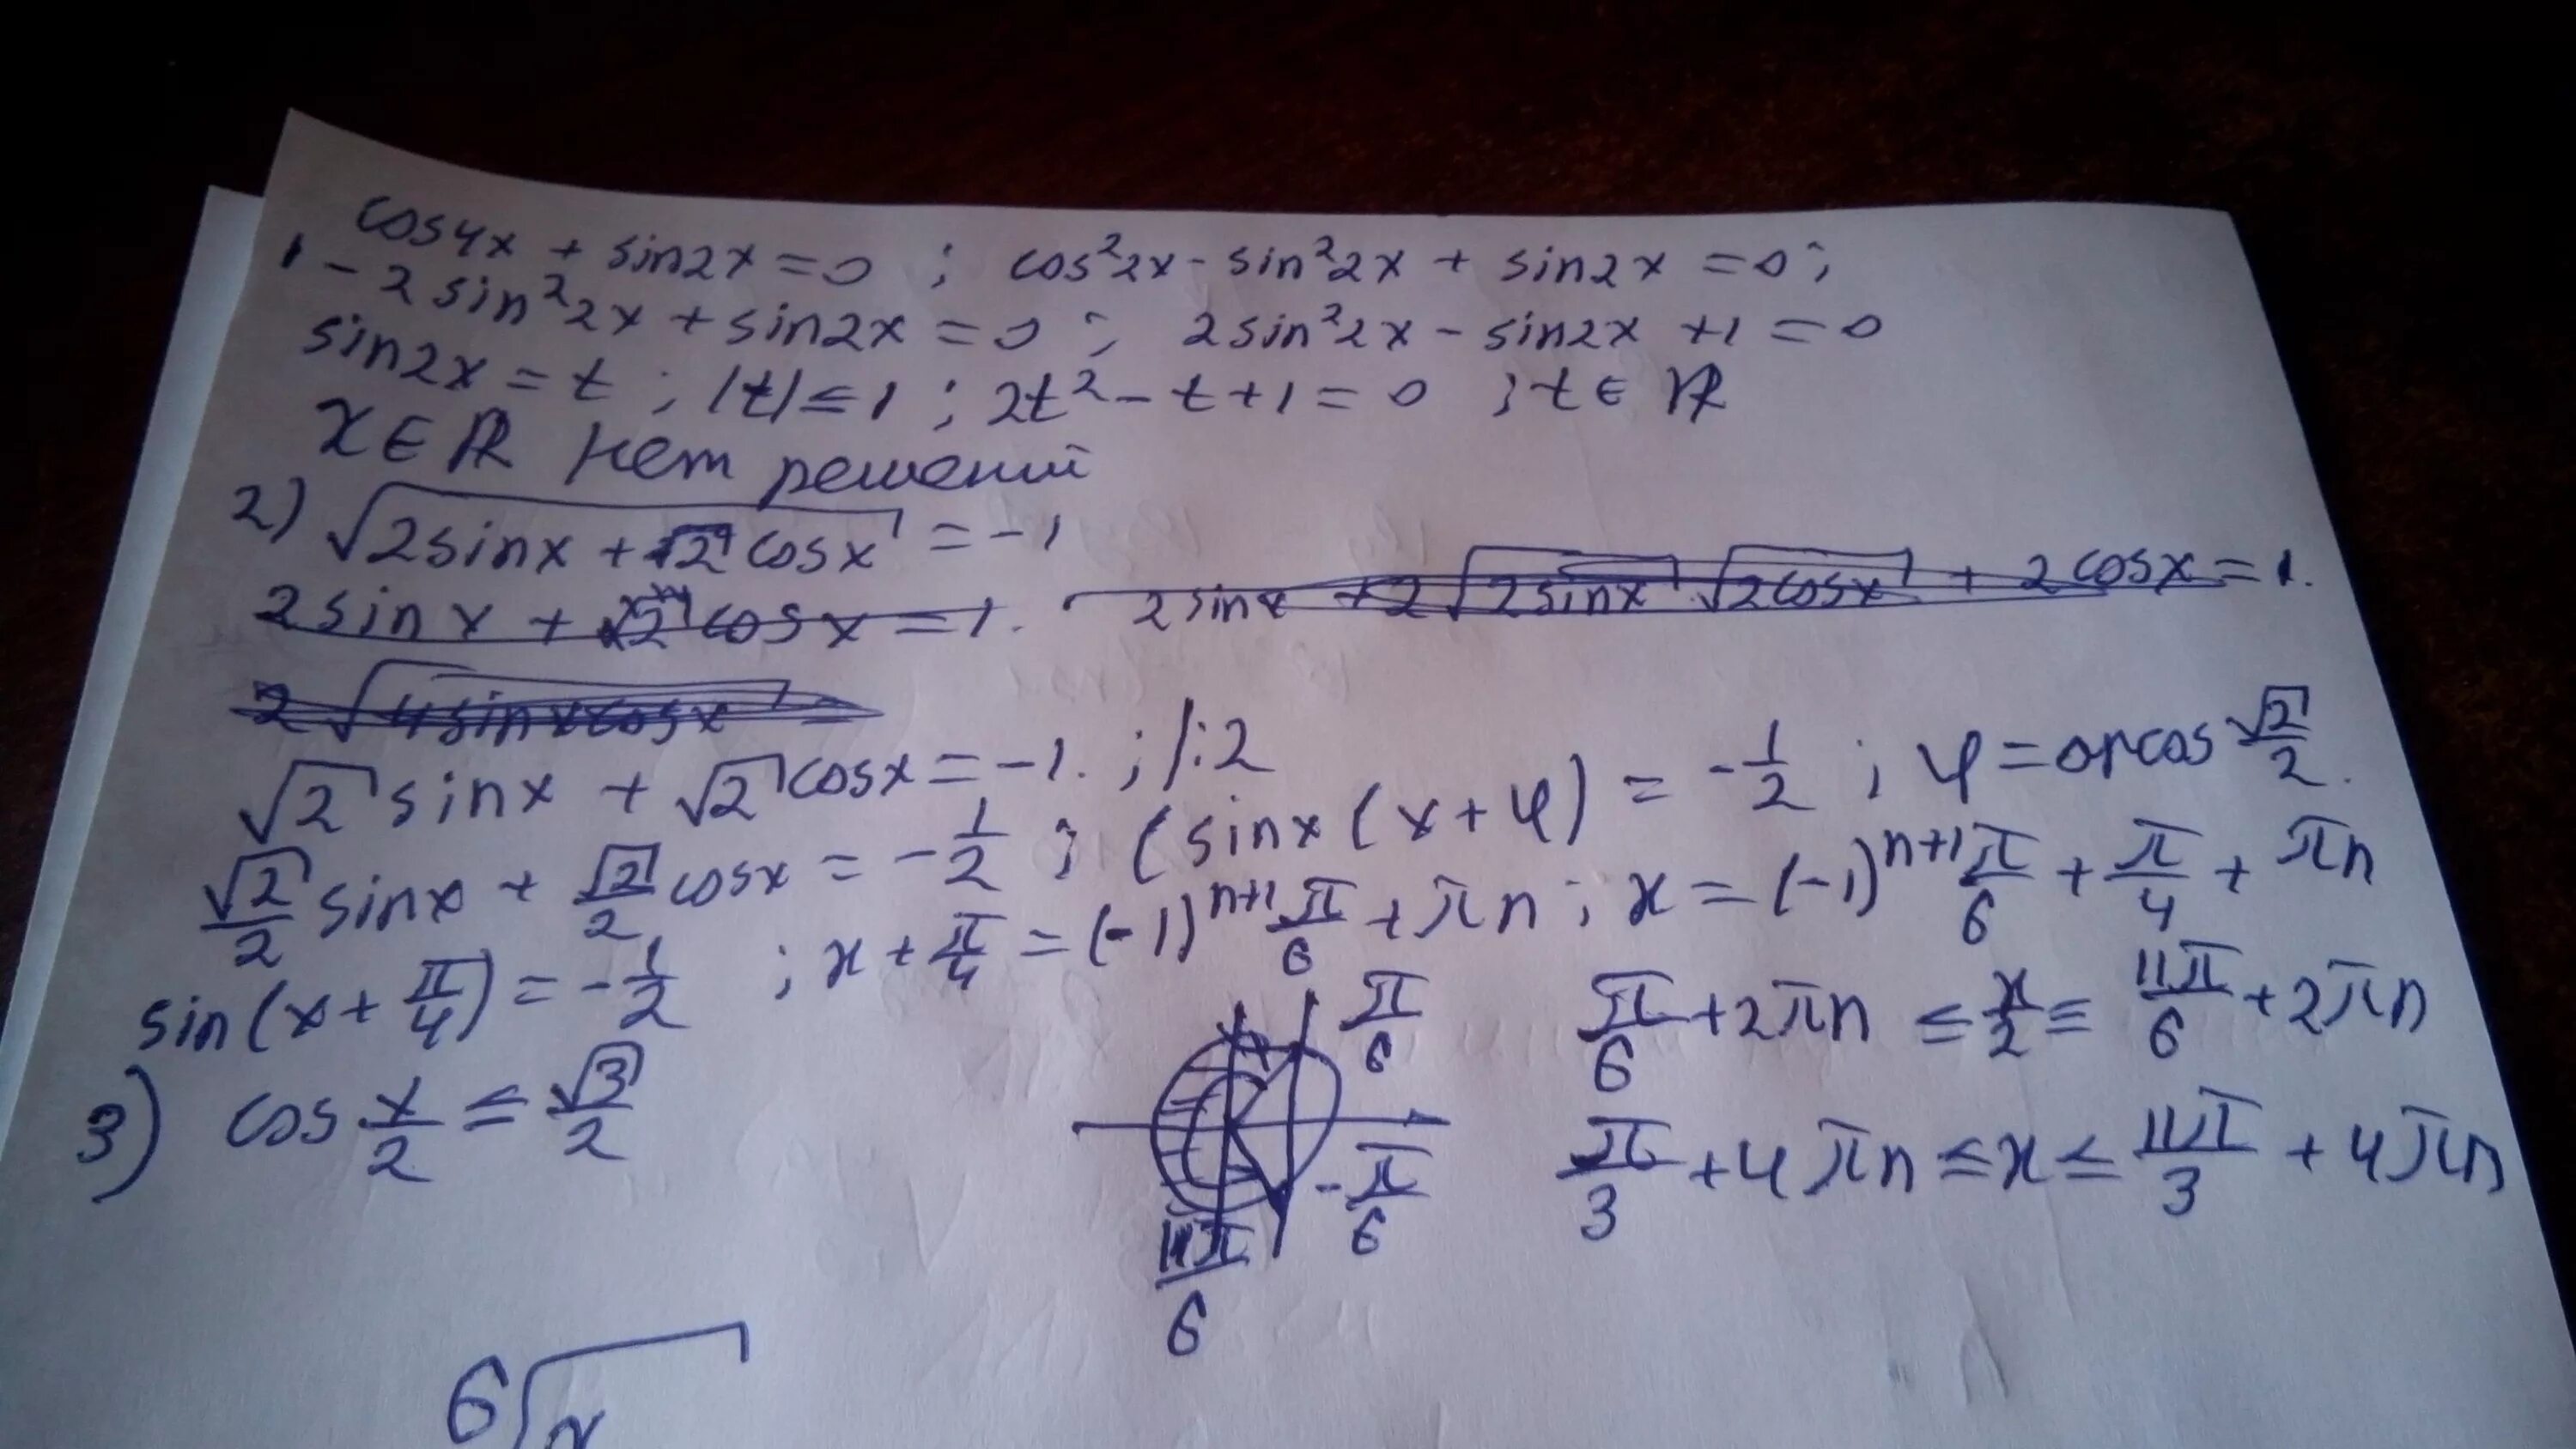 cos4x + sin2x = 0 ; cos²2x - sin²2x + sin2x = 0 ;
1 - 2sin²2x + sin2x = 0 ; 2sin²2x - sin2x + 1 = 0
sin2x = t ; |t| ≤ 1 ; 2t² - t + 1 = 0 ; t ∈ R
x ∈ R нет решений
2) √(2sinx + √2 cosx) = -1
2sinx + √2 cosx = 1. 2sinx + 2√(2sinx) √(2cosx) + 2cosx = 1.
2√(4sinxcosx) =
√2 sinx + √2 cosx = -1. ; /:2
√2/2 sinx + √2/2 cosx = -1/2 ; (sinx(x+φ) = -1/2 ; φ = arcos √2/2.
sin(x + π/4) = -1/2 ; x + π/4 = (-1)ⁿ⁺¹ π/6 + πn ; x = (-1)ⁿ⁺¹ π/6 + π/4 + πn
3) cos x/2 ≤ √3/2 π/6 π/6 + 2πn ≤ x/2 ≤ 11π/6 + 2πn
-π/6 π/3 + 4πn ≤ x ≤ 11π/3 + 4πn
11π/6
6√x